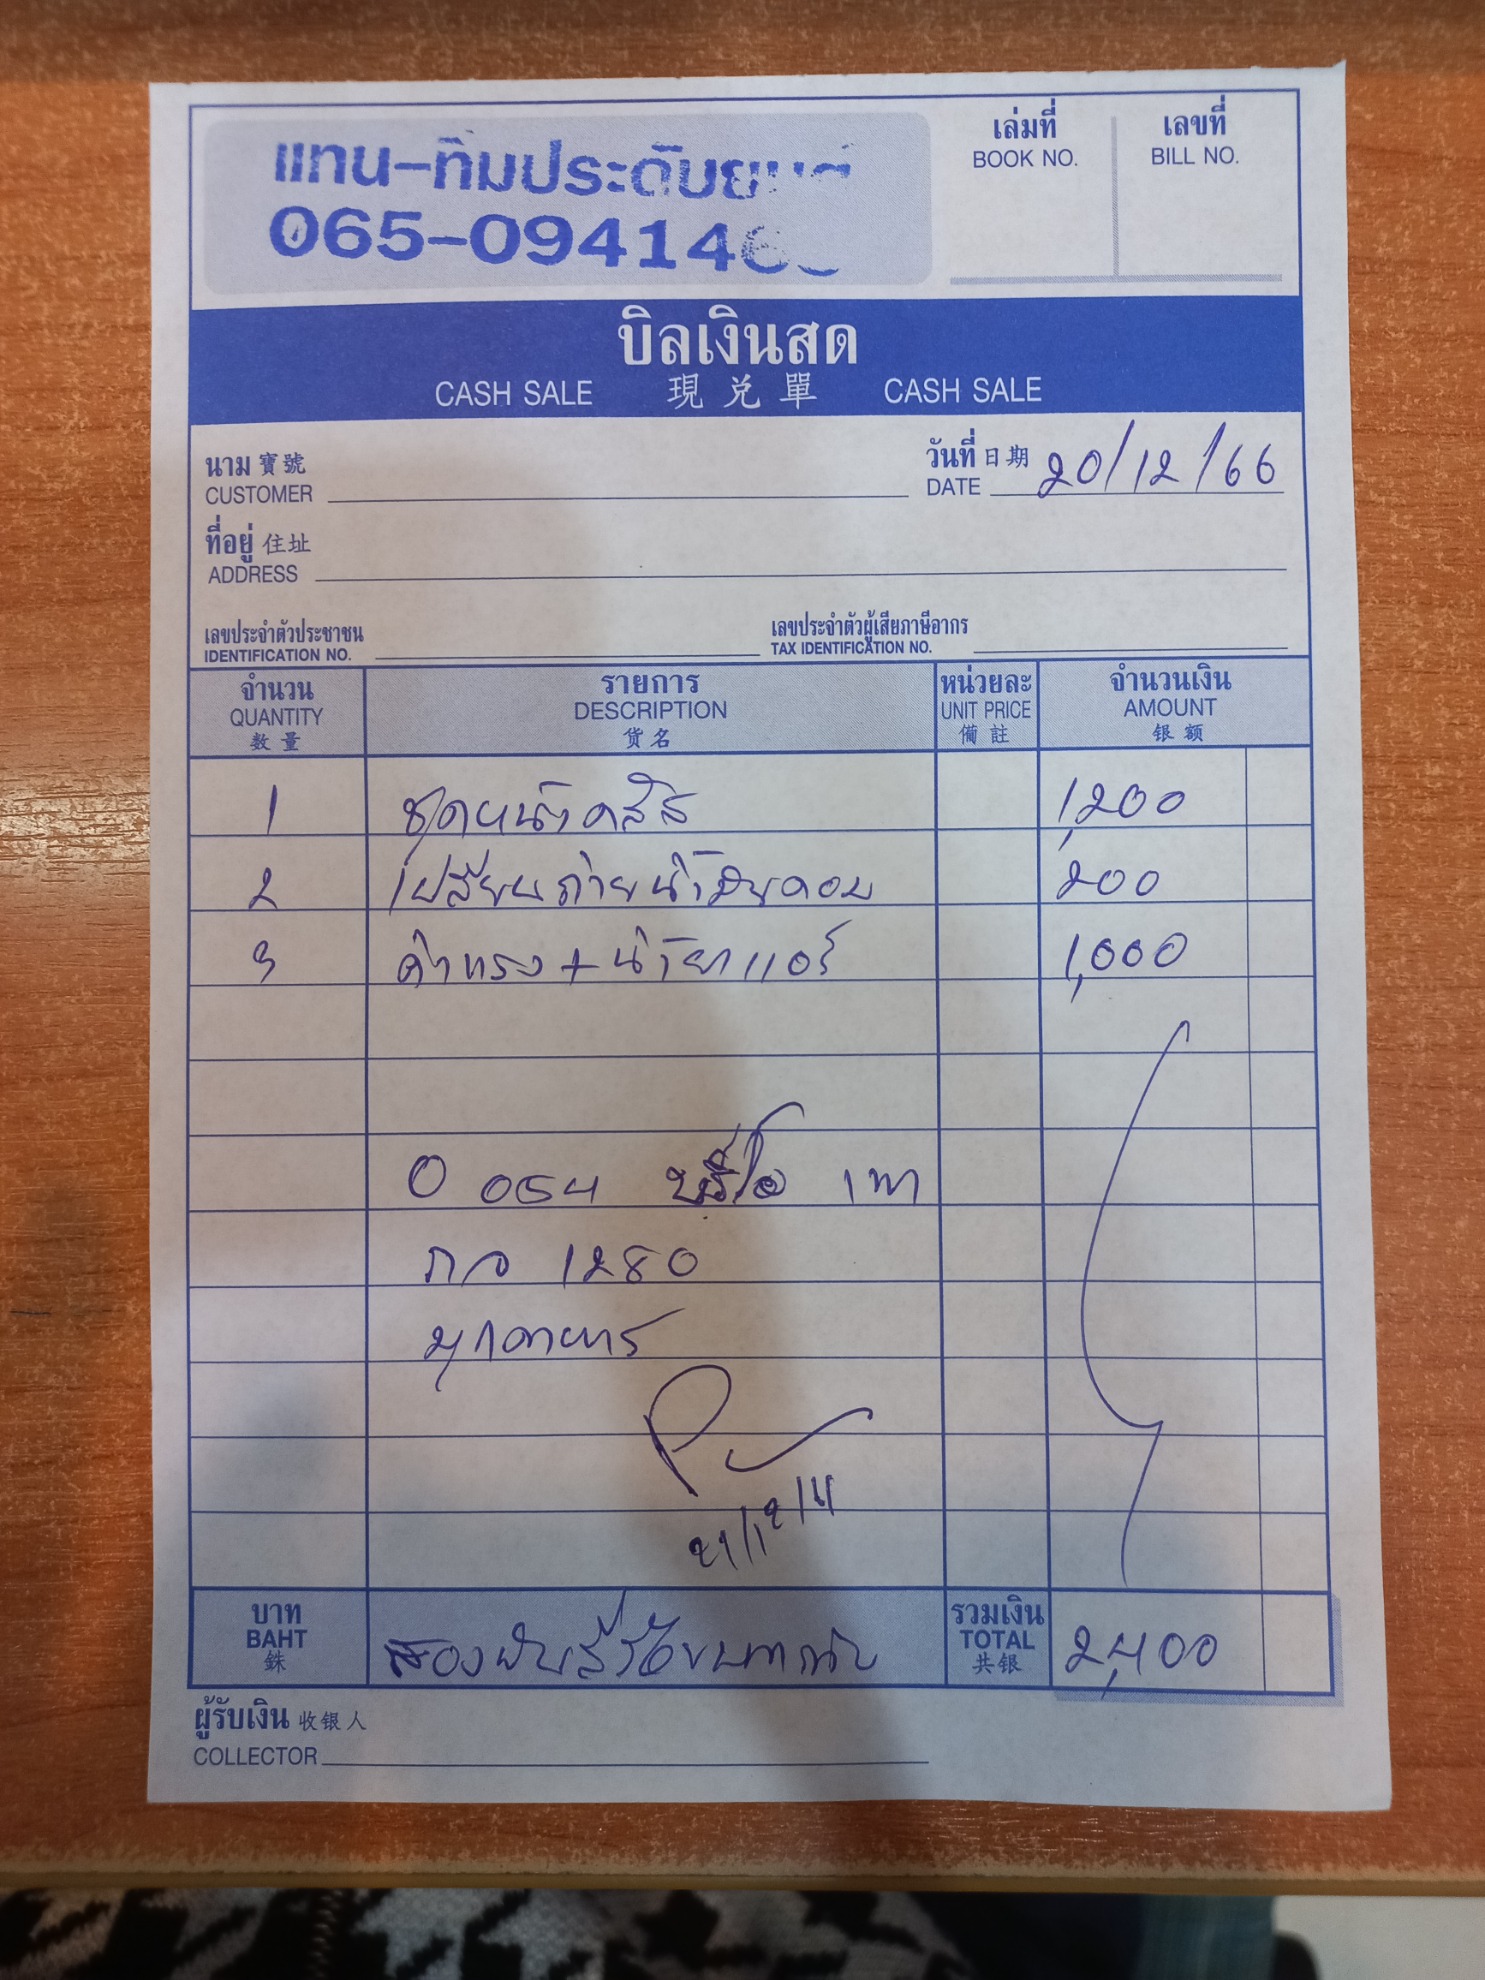 แทน-ทิมประดับยนต์
065-09414
เล่มที่
BOOK NO.
เลขที่
BILL NO.
บิลเงินสด
CASH SALE 現兌單 CASH SALE
นาม 寶號
CUSTOMER
วันที่ 日期 20/12/66
DATE
ที่อยู่ 住址
ADDRESS
เลขประจำตัวประชาชน
IDENTIFICATION NO.
เลขประจำตัวผู้เสียภาษีอากร
TAX IDENTIFICATION NO.
จำนวน รายการ หน่วยละ จำนวนเงิน
QUANTITY DESCRIPTION UNIT PRICE AMOUNT
数量 货名 備註 银额
1 ชุดหน้าคลัส 1,200
2 เปลี่ยนถ่ายน้ำมันคอม 200
3 ค่าแรง+น้ำยาแอร์ 1,000
054 เทา
กจ 1280
มุกดาหาร
21/12/
บาท
BAHT
銖
สองพันสี่ร้อยบาทถ้วน
รวมเงิน
TOTAL
共银
2,400
ผู้รับเงิน 收银人
COLLECTOR